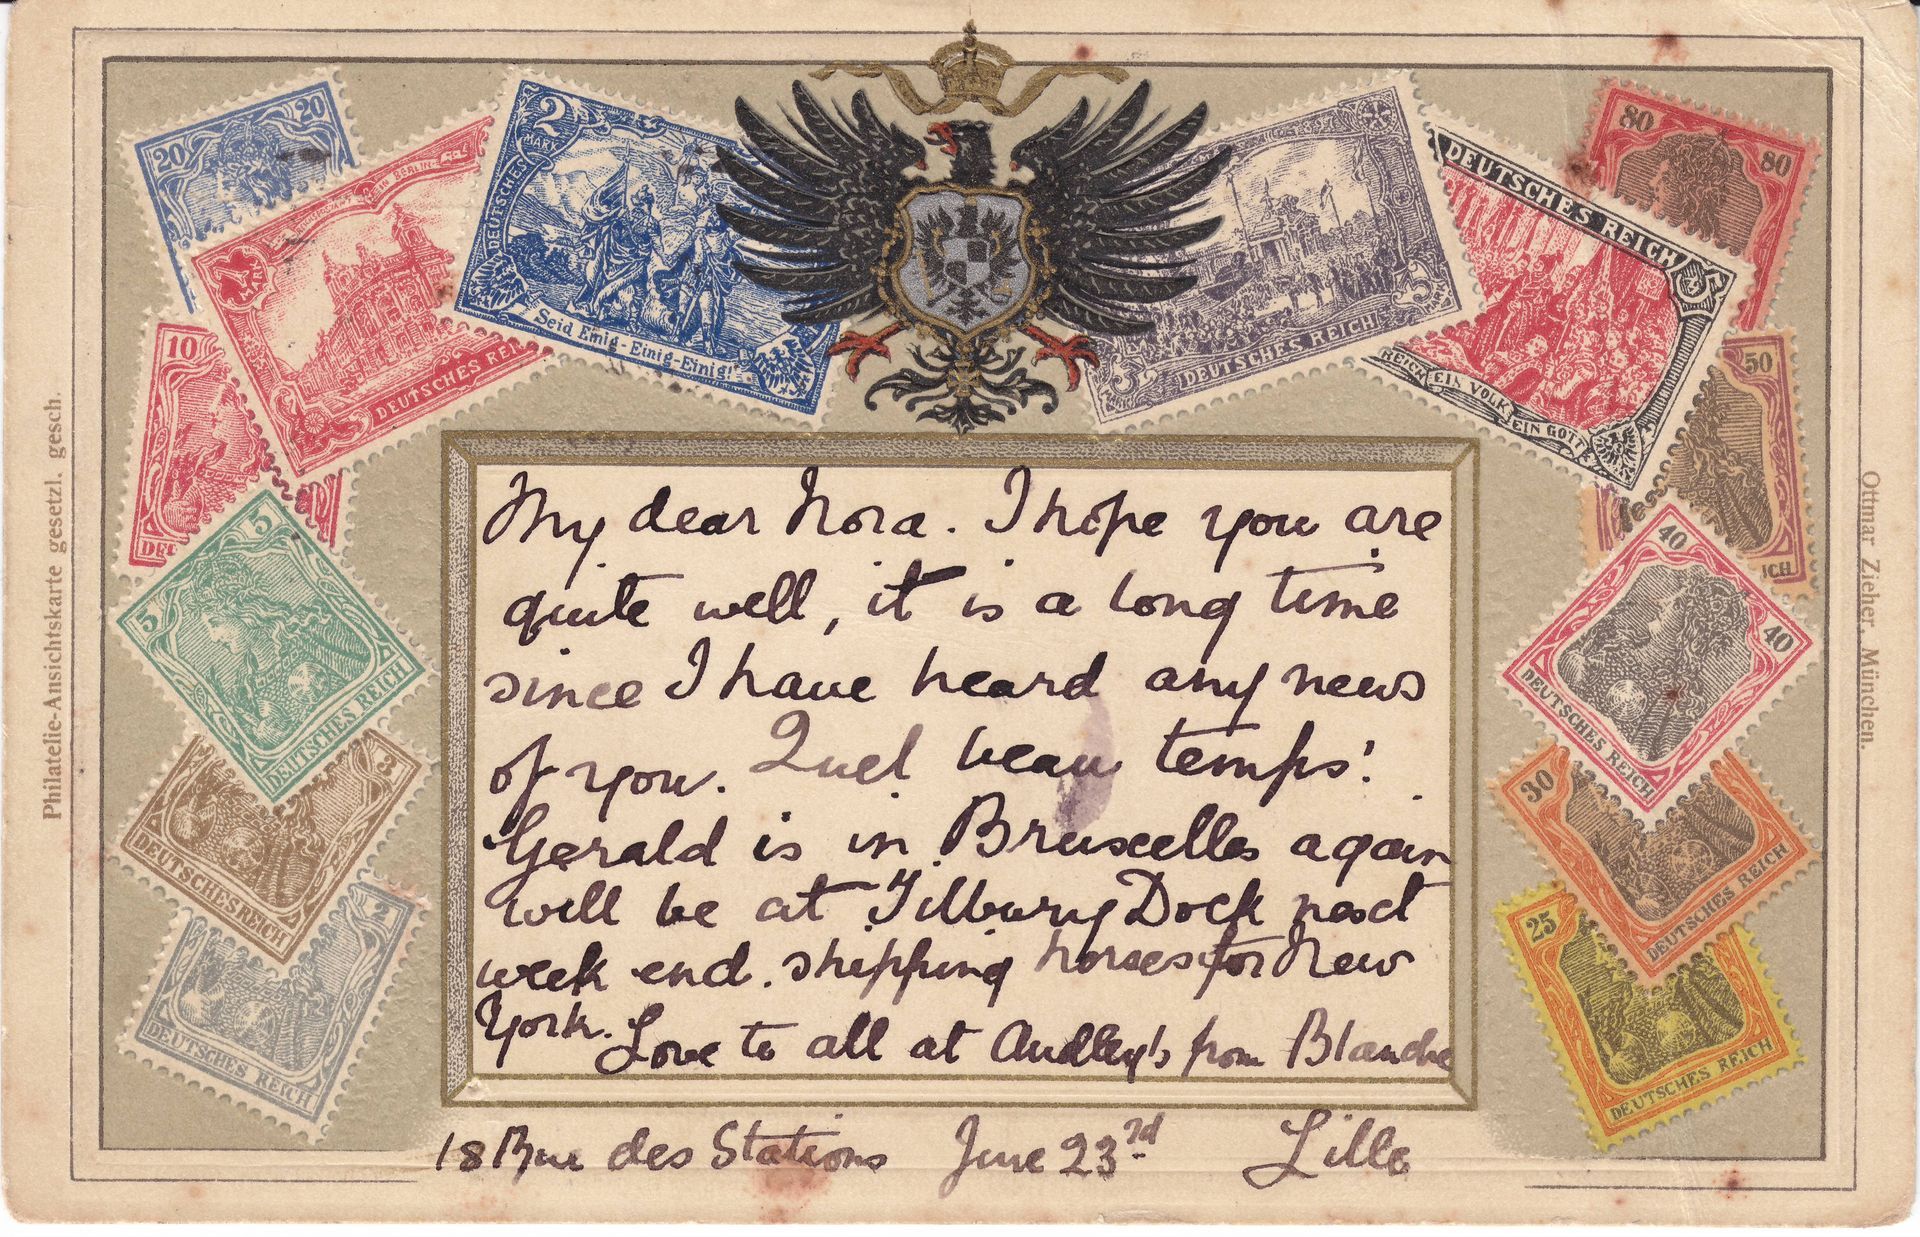 20
20
1 MARK
DEUTSCHES REI
2
MARK
DEUTSCHES
Seid Einig-Einig-Einig!
3
3
MARK
DEUTSCHES REICH
DEUTSCHES REICH
REICH EIN VOLK EIN GOTT
80
80
10
50
ICH
5
5
DEUTSCHES REICH
40
40
DEUTSCHES REICH
3
DEUTSCHES REICH
30
DEUTSCHES REICH
2
DEUTSCHES REICH
25
DEUTSCHES REICH
Philatelie-Ansichtskarte gesetzl. gesch.
Ottmar Zieher, München.
My dear Nora. I hope you are
quite well, it is a long time
since I have heard any news
of you. Quel beau temps!
Gerald is in Bruxelles again
will be at Tilbury Dock next
week end. shipping horses for New
York. Love to all at Audley's from Blanche
18 Rue des Stations June 23rd Lille